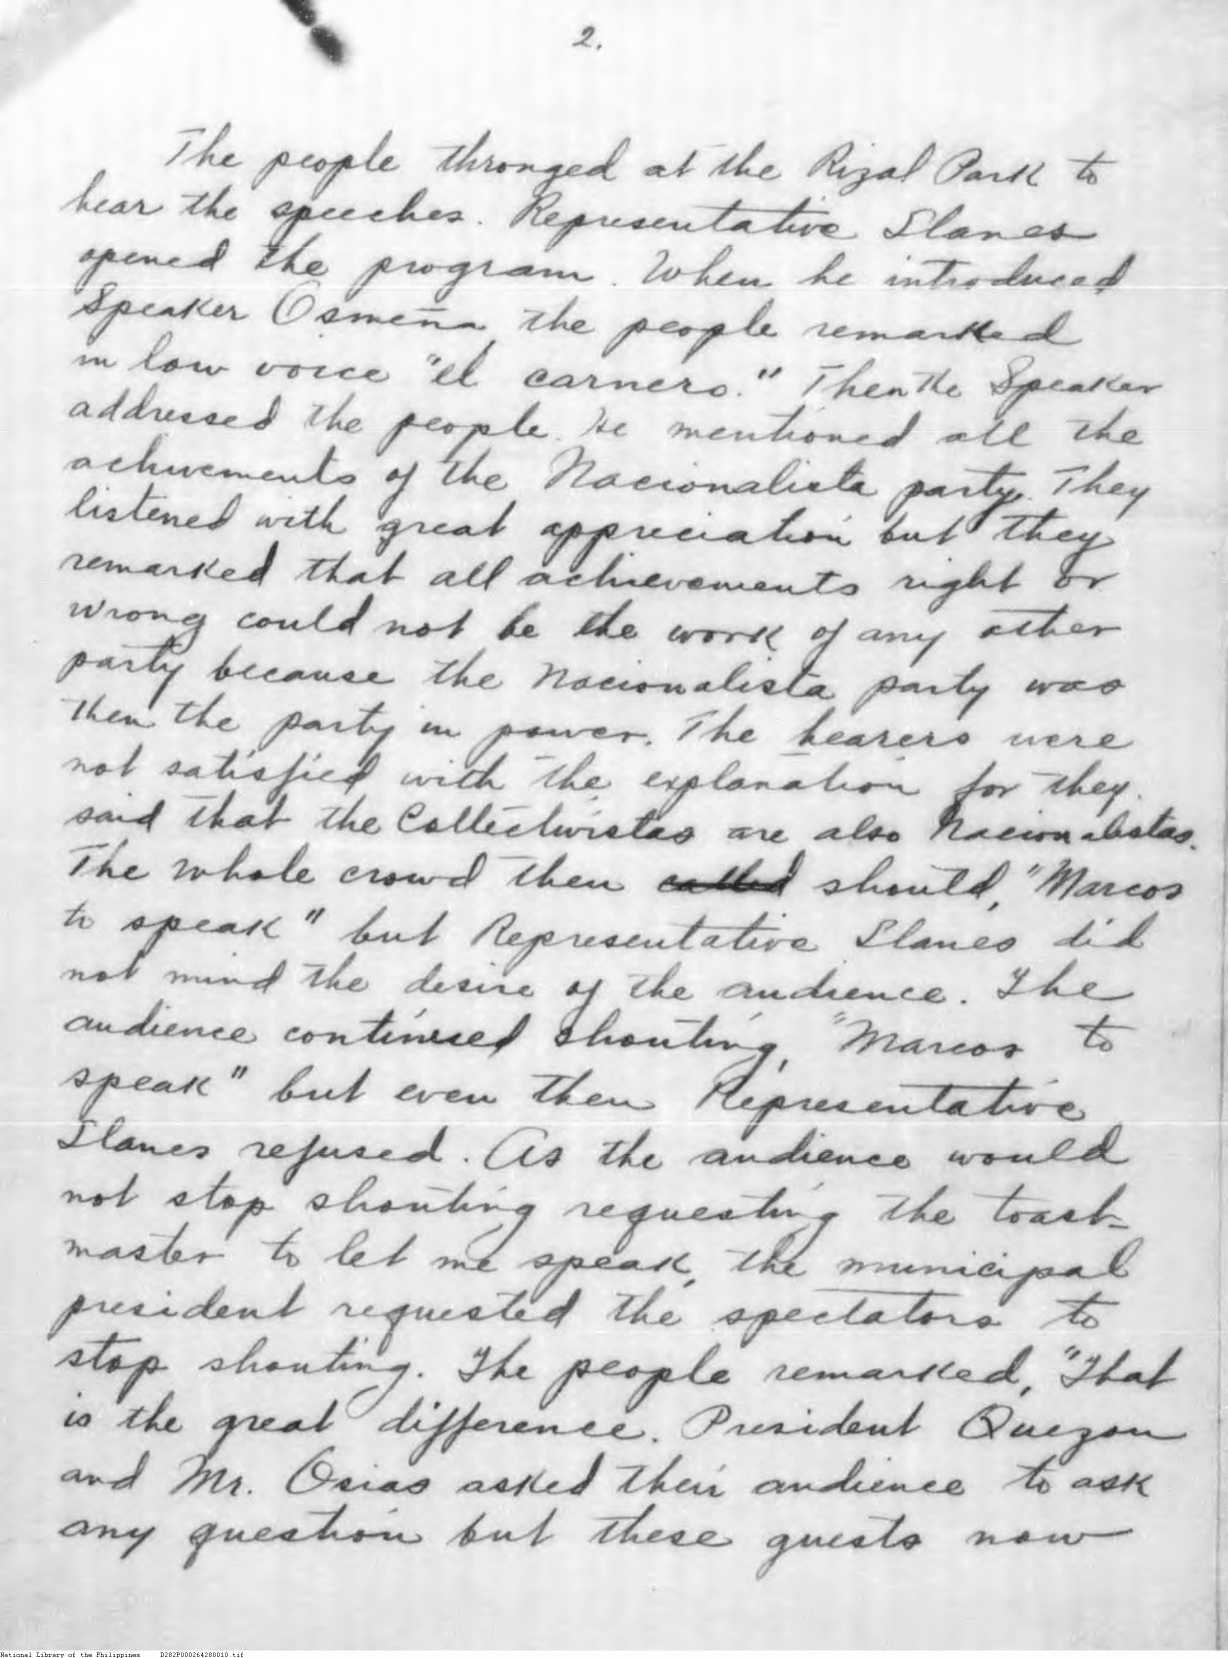 2.
The people thronged at the Rizal Park to
hear the speeches. Representative Llanes
opened the program. When he introduced
Speaker Osmeña, the people remarked
in low voice "el carnero." Then the Speaker
addressed the people. He mentioned all the
achivements of the Nacionalista party. They
listened with great appreciation but they
remarked that all achievements right or
wrong could not be the work of any other
party because the Nacionalista party was
then the party in power. The hearers were
not satisfied with the explanation for they
said that the Collectivistas are also Nacionalistas.
The whole crowd then called should, "Marcos
to speak" but Representative Llanes did
not mind the desire of the audience. The
audience continued shouting, "Marcos to
speak" but even then Representative
Llanes refused. As the audience would
not stop shouting requesting the toast-
master to let me speak, the municipal
president requested the spectators to
stop shouting. The people remarked, "That
is the great difference. President Quezon
and Mr. Osias asked their audience to ask
any question but these guests now
National Library of the Philippines D282P000264288010.tif